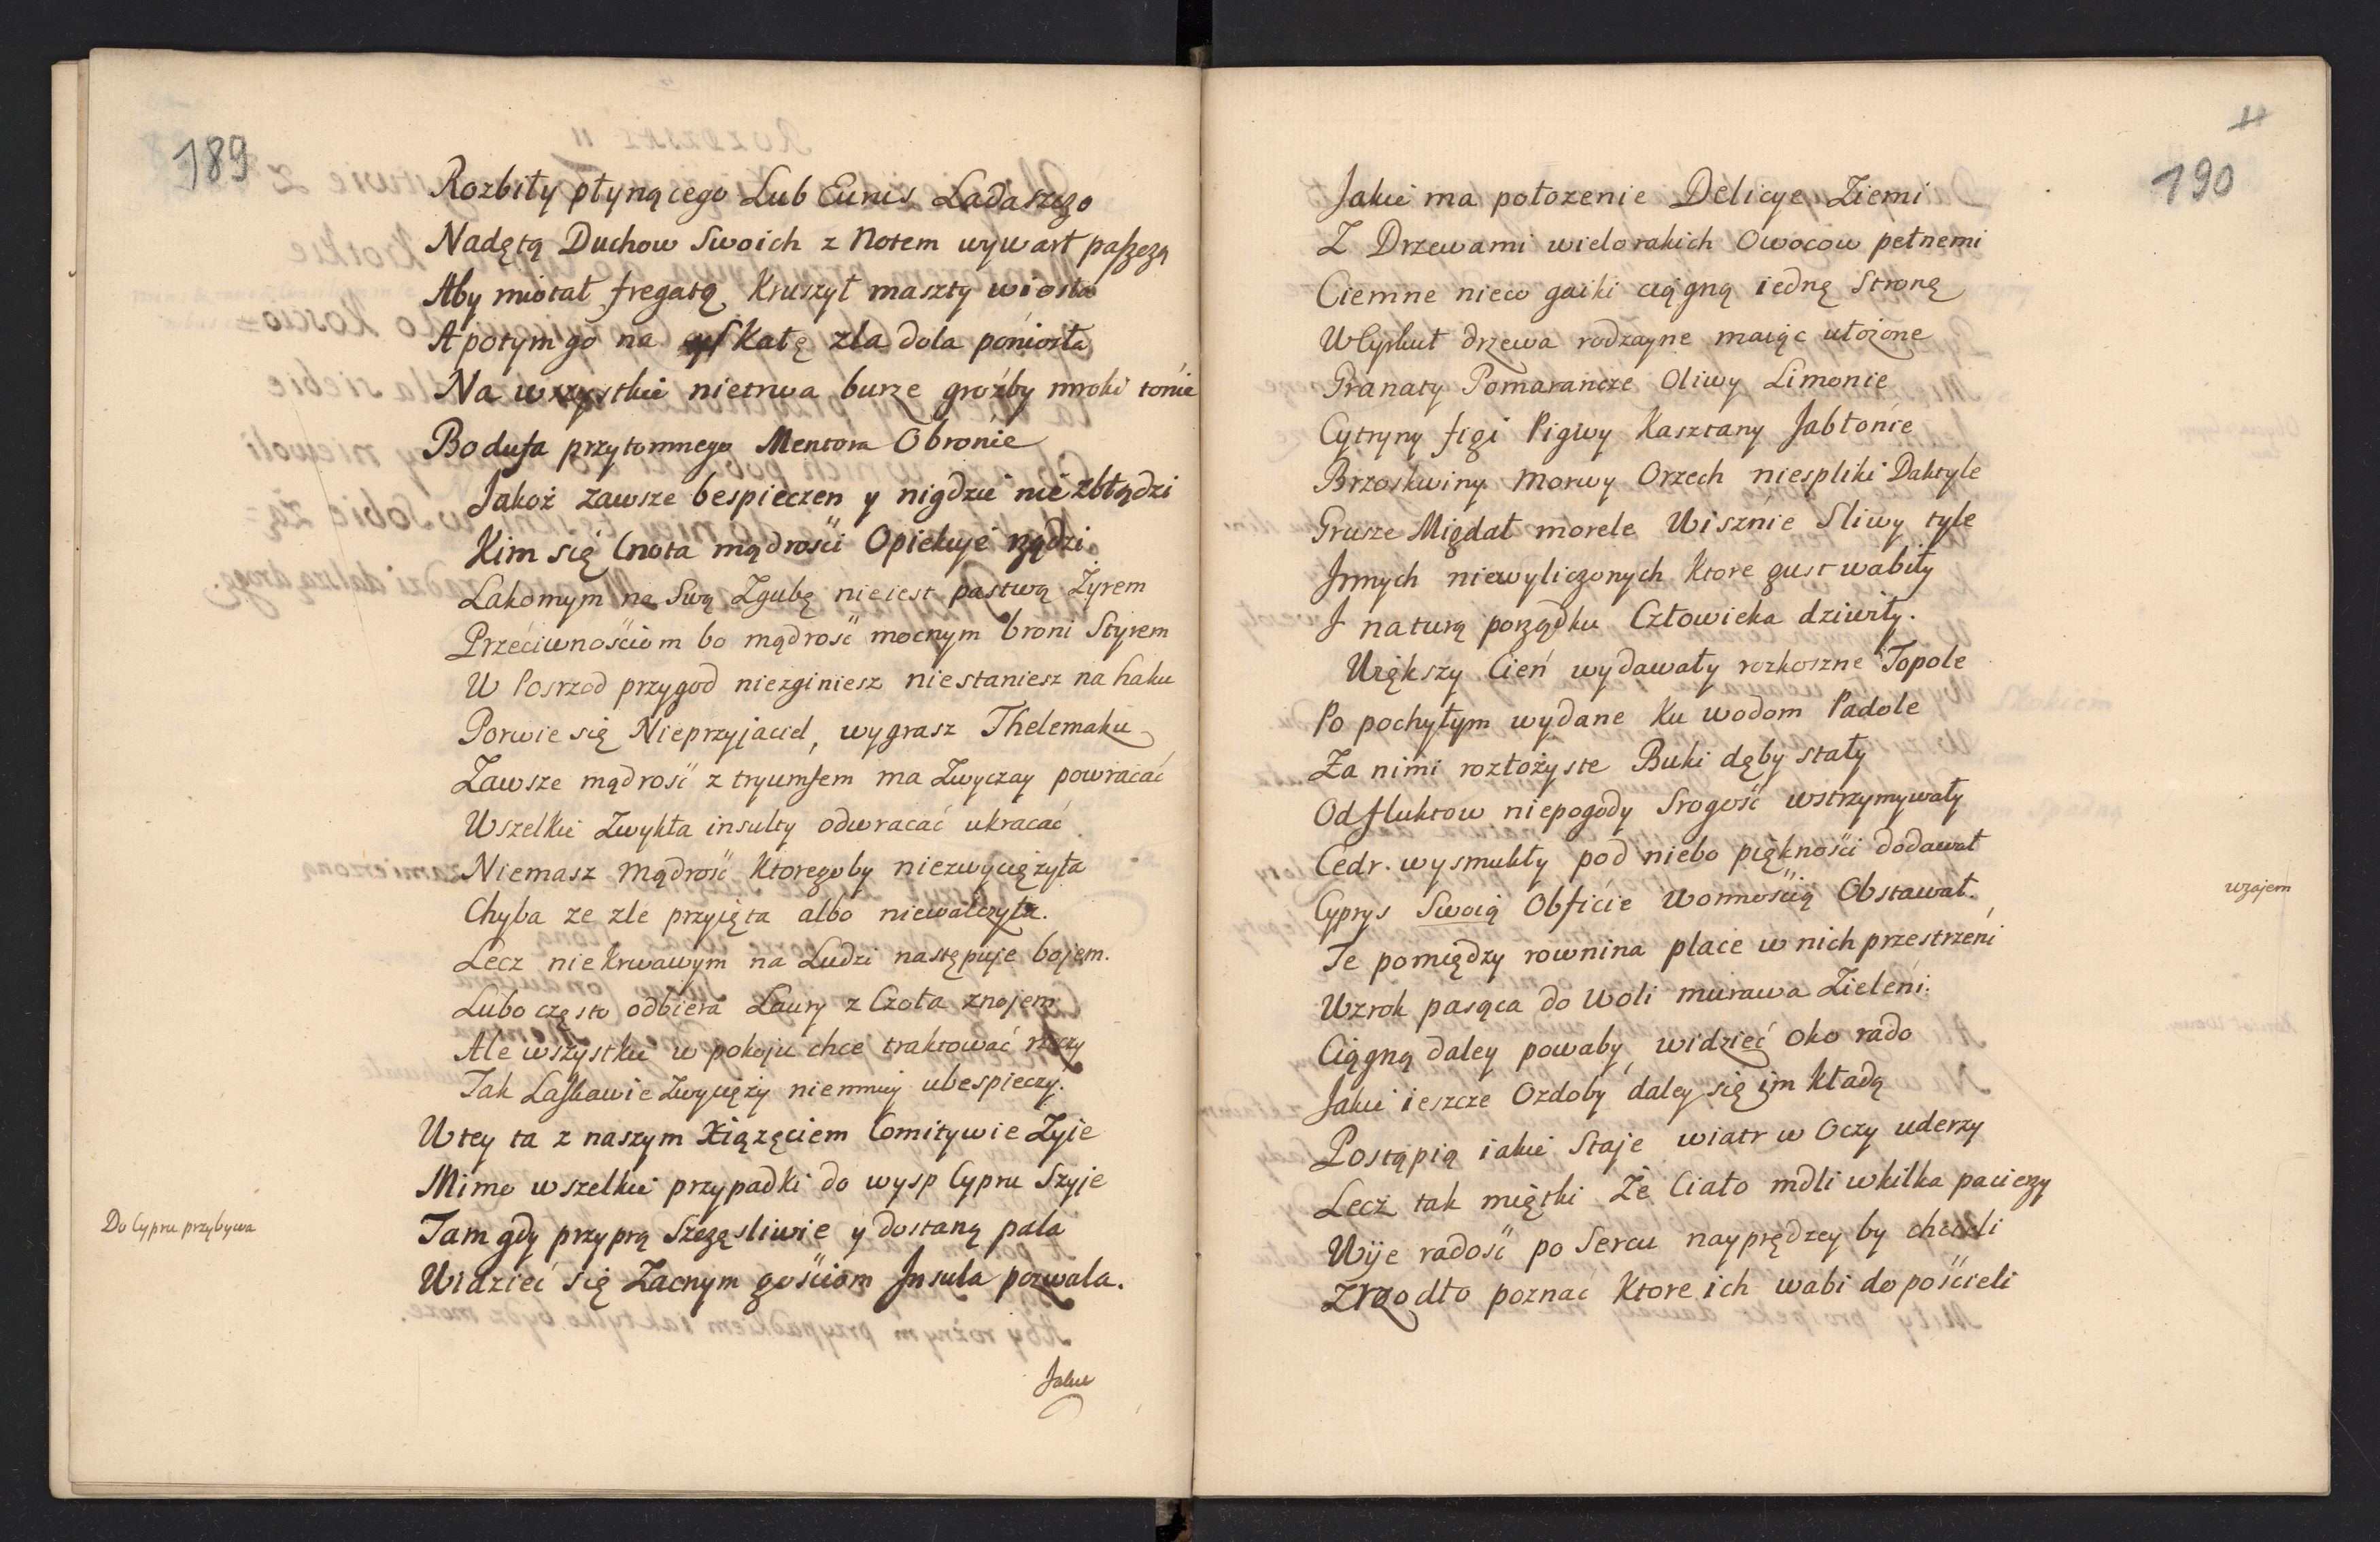 189
Rozbiły płynącego Lub Eunis Ladaszczo
Nadętą Duchow Swoich z Notem wywarł paszczą
Aby miotał fregatą Kruszył maszty wiosła
A potym go na Skałę zła dola poniosła
Na wszystkie nietrwa burze groźby mroki tonie
Bo dufa przytomnego Mentora Obronie
Jakoż zawsze bespieczen y nigdzie nie zbłądzi
Kim się Cnota mądrości Opiekuje rządzi
Lakomym na Swą Zgubę nieiest pastwą Żyrem
Przeciwnościom bo mądrość mocnym broni Styrem
W Posrzod przygod niezginiesz niestaniesz na haku
Porwie się Nieprzyjaciel, wygrasz Thelemaku
Zawsze mądrość z tryumfem ma Zwyczay powracać
Wszelkie Zwykła insulty odwracać ukracać
Niemasz Mądrość Ktoregoby niezwyciężyła
Chyba ze zle przyięta albo niewalczyła.
Lecz nie Krwawym na Ludzi następuje bojem.
Lubo często odbiera Laury z Czoła znojem
Ale wszystkie w pokoju chce traktować rzeczy
Tak Laskawie Zwycięży niemniey ubespieczy.
W tey ta z naszym Xiążęciem Comitywie Żyie
Mimo wszelkie przypadki do wysp Cypru Szyje
Do Cypru przybywa
Tam gdy przyprą Szczęsliwie y dostaną pala
Widzieć się Zacnym gościom Insula pozwala.
Jakie
11
190
Jakie ma położenie Delicye Ziemi
Z Drzewami wielorakich Owocow pełnemi
Ciemne nieco gaiki ciągną iedną Stroną
W Cyrkuł drzewa rodzayne maiąc ułożone
Granaty Pomarańcze Oliwy Limonie
Cytryny figi Pigwy Kasztany Jabłonie
Brzoskwiny Morwy Orzech niespliki Daktyle
Grusze Migdał morele Wisznie Sliwy tyle
Innych niewyliczonych Ktore gust wabiły
I naturą porządku Człowieka dziwiły.
Większy Cień wydawały rozkoszne Topole
Po pochyłym wydane Ku wodom Padole
Za nimi rozłożyste Buki dęby stały
Od fluktow niepogody Srogość wstrzymywały
Cedr wysmukły pod niebo piękności dodawał
wzajem
Cyprys Swoią Obficie Wonnością Obstawał.
Te pomiędzy rownina place w nich przestrzeni
Wzrok pasąca do Woli murawa Zieleni.
Ciągną daley powaby widzieć oko rado
Jakie ieszcze Ozdoby daley się im Kładą
Postąpią iakie Staje wiatr w Oczy uderzy
Lecz tak miętki Że Ciało mdli w kilka pacierzy
Wije radość po Sercu nayprędzey by chcieli
Zrzodło poznać Ktore ich wabi do pościeli